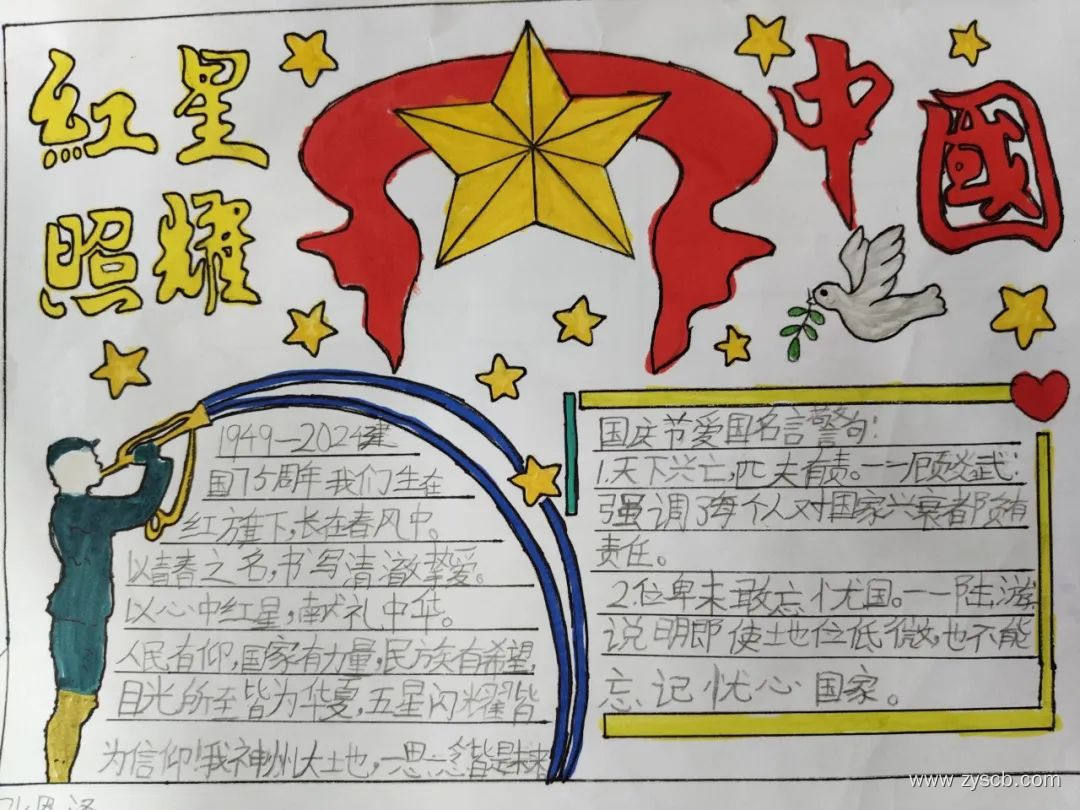 红星
照耀
中
國
1949—2024建
国75周年我们生在
红旗下,长在春风中。
以青春之名,书写清澈挚爱。
以心中红星,献礼中华。
人民有仰,国家有力量,民族有希望,
目光所至皆为华夏,五星闪耀皆
为信仰!我神州大土地,一思一念皆是未来
国庆节爱国名言警句:
1.天下兴亡,匹夫有责。——顾炎武:
强调了每个人对国家兴衰都负有
责任。
2.位卑未敢忘忧国。——陆游
说明即使土地位低微,也不能
忘记忧心国家。
www.zyscb.com